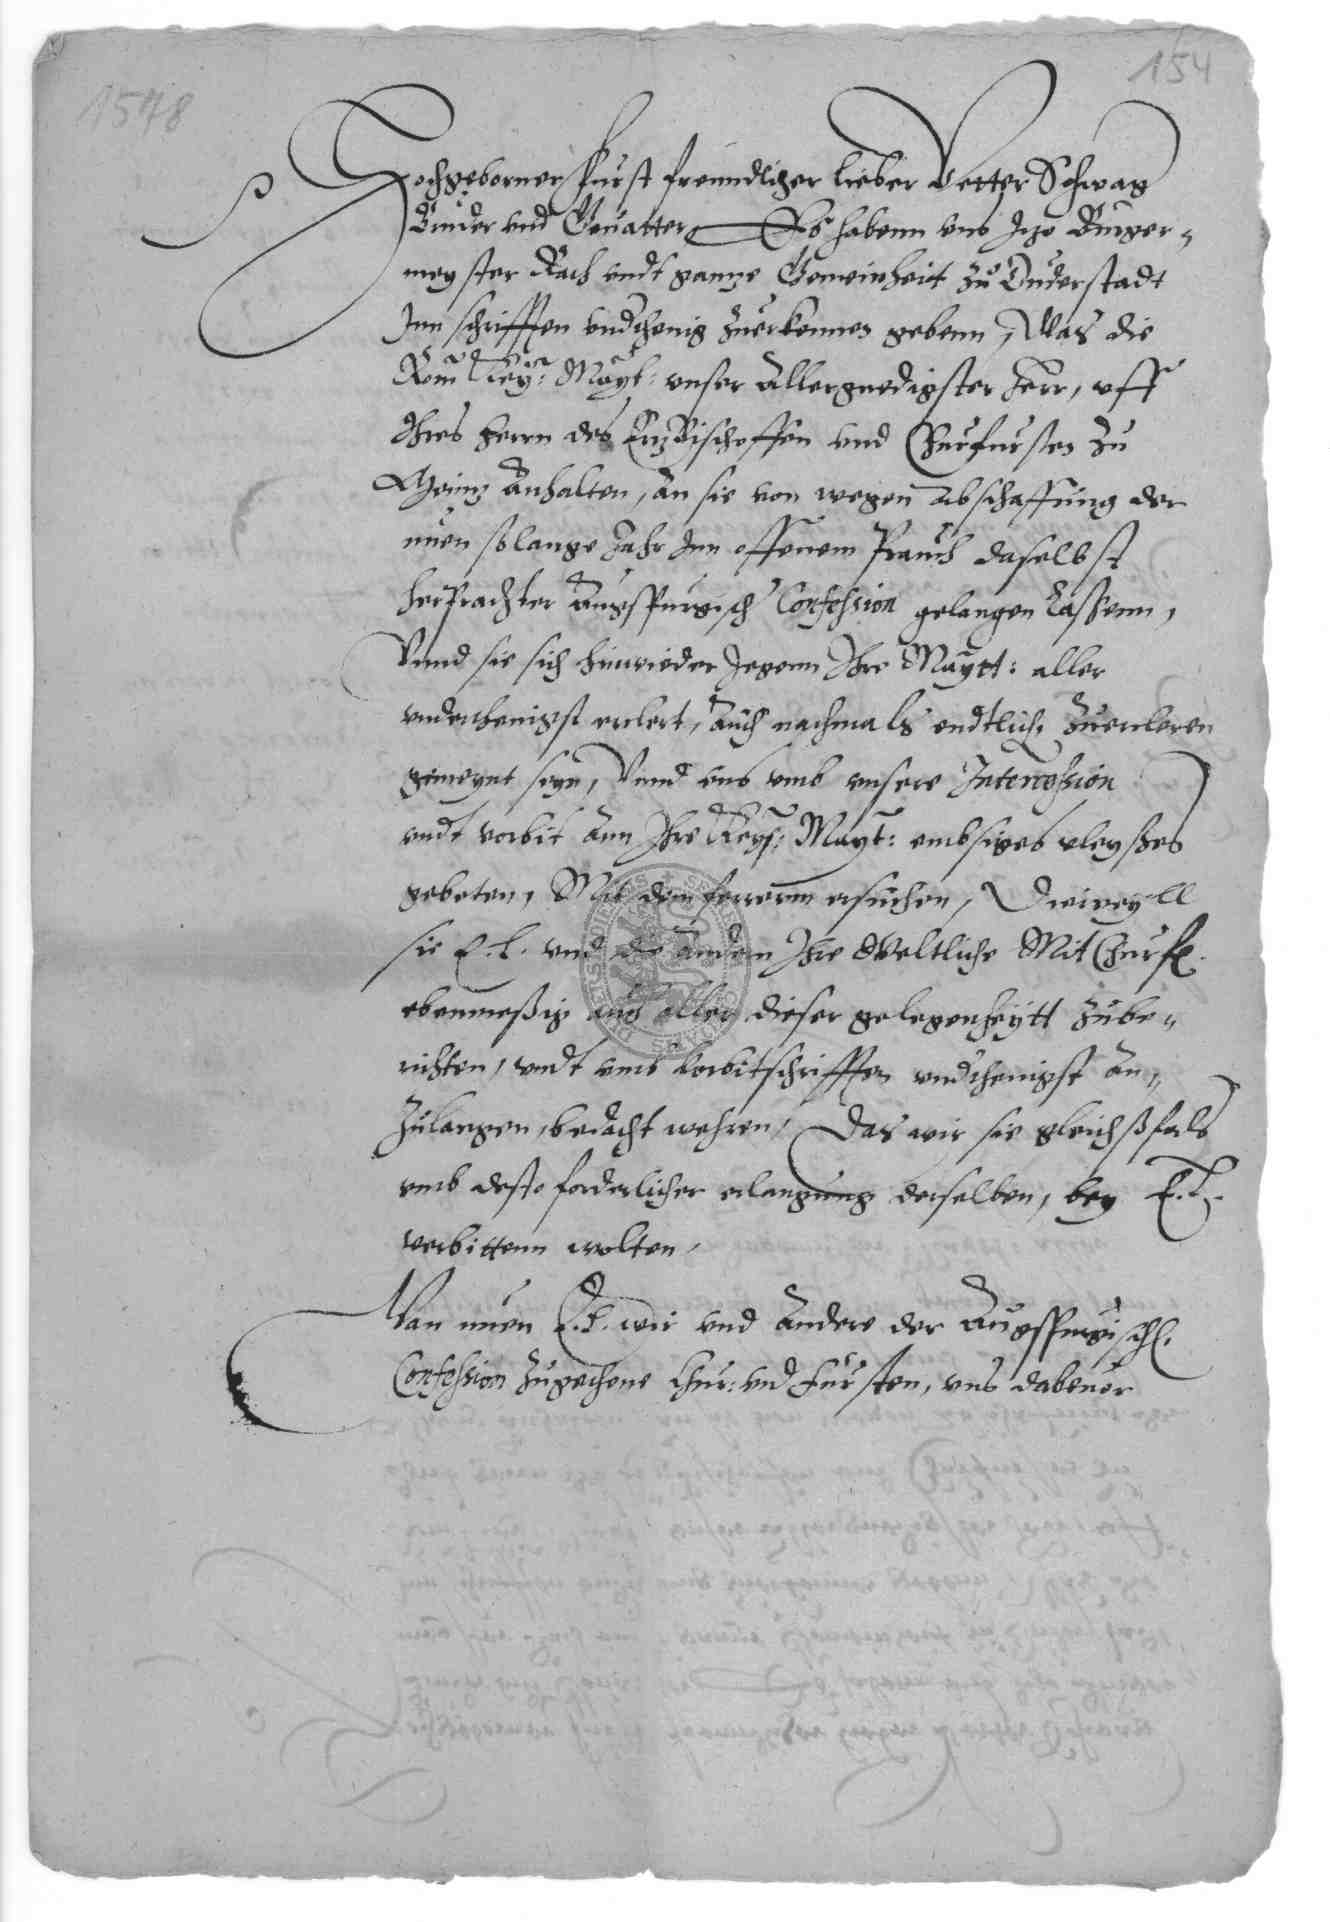 154
1578
Hochgeborner Furst freundlicher lieber Vetter Schwag
Bruder vnd Geuatter, Es habenn vns Itzo Burger-
meyster Rath vndt gantze Gemeinheit zu Duderstadt
Inn schrifften vndthenig zuerkennen gebenn, Was die
Rom: Key: Mayt: vnser Allergnedigster Herr, vff
Ihres Herrn des ErtzBischoffen vnd Churfursten zu
Meintz Anhalten, An sie von wegen Abschaffung der
nuen so lange Jahr Inn offenem Prauch daselbst
herprachter Augspurgisch Confession gelangen lassenn,
Vnnd sie sich hinwieder Jegenn Ihre Maytt: aller
vnderthenigst erclert, Auch nachmals endtlich zuercleren
gemeynt seyn, Vnnd vns vmb vnsere Intercession
vndt vorbit Ann Ihre Keys: Mayt: embsiges vleysses
gebeten, Mit dem fernerm ersuchen, Dieweyll
sie E. L. vnd die Andern Ihre Weltliche MitChurf.
ebenmessig auch aller dieser gelegenheytt zube-
richten, vndt vmb vorbitschrifften vndthenigst an-
zulangen, bedacht wehren, Das wir sie gleichssfals
vmb desto forderlicher erlangung derselben, bey E. L.
verbittenn wolten,
Wan nuen E. L. wir vnd Andere der Augsspurgisch.
Confession zugethane Chur: vnd Fursten, vns dabeuor